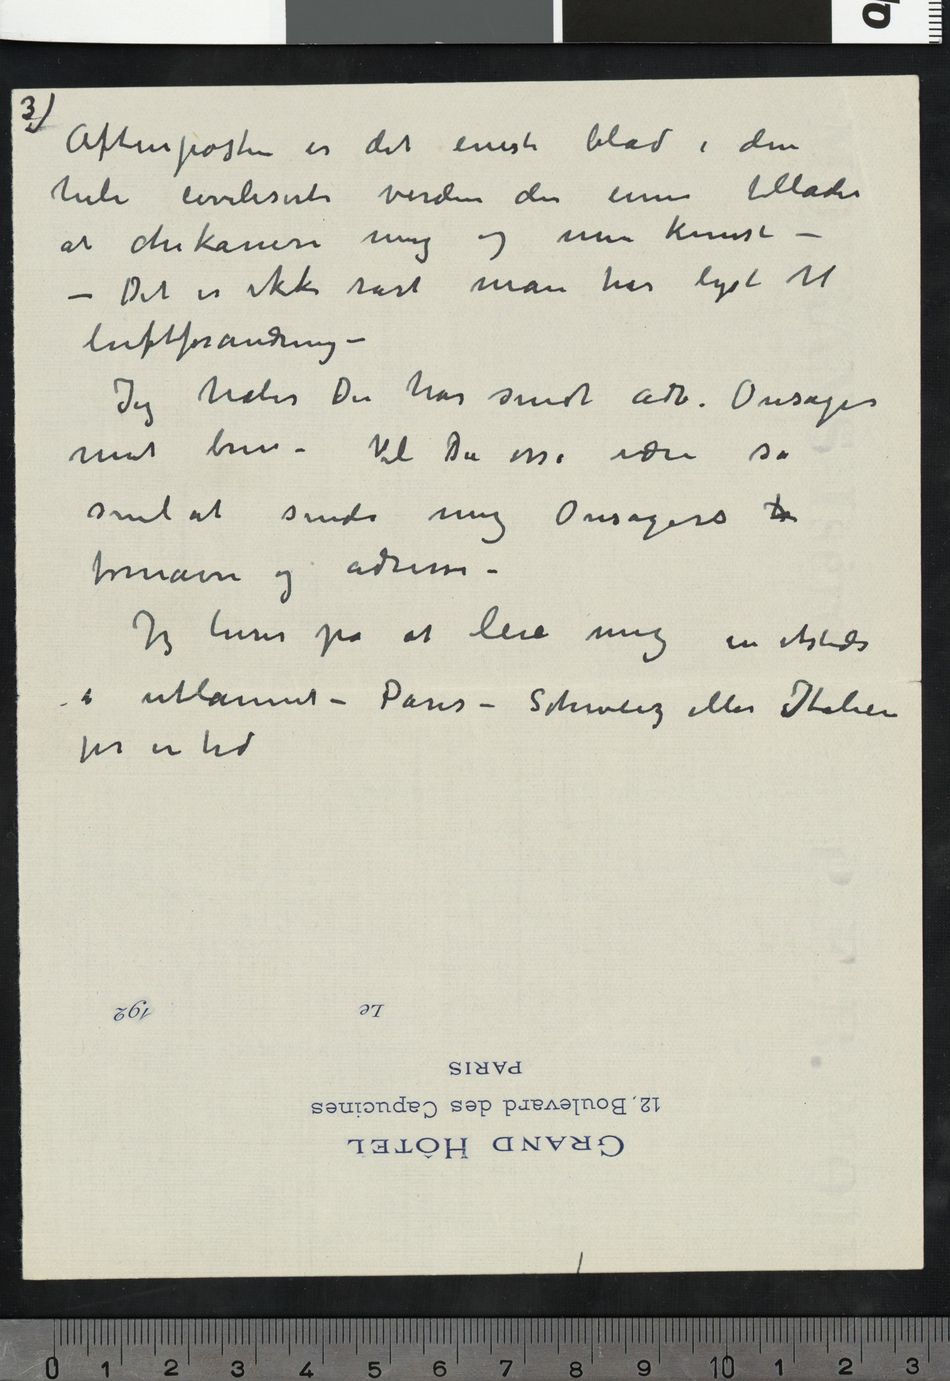 3)
Aftenposten er det eneste blad i den
hele civiliserte verden der ennu tillader
at chikanere mig og min kunst –
– Det er ikke rart man har lyst til
luftforandring –
Jeg haber Du har sendt adv. Onsager
mit brev – Vil Du også være så
snil at sende mig Onsagers
fornavn og adresse –
Jeg lurer på at leie mig in etsteds
i utlannet – Paris – Schweiz eller Italien
for en tid
192 Le
PARIS
12, Boulevard des Capucines
GRAND HÔTEL
0 1 2 3 4 5 6 7 8 9 10 1 2 3